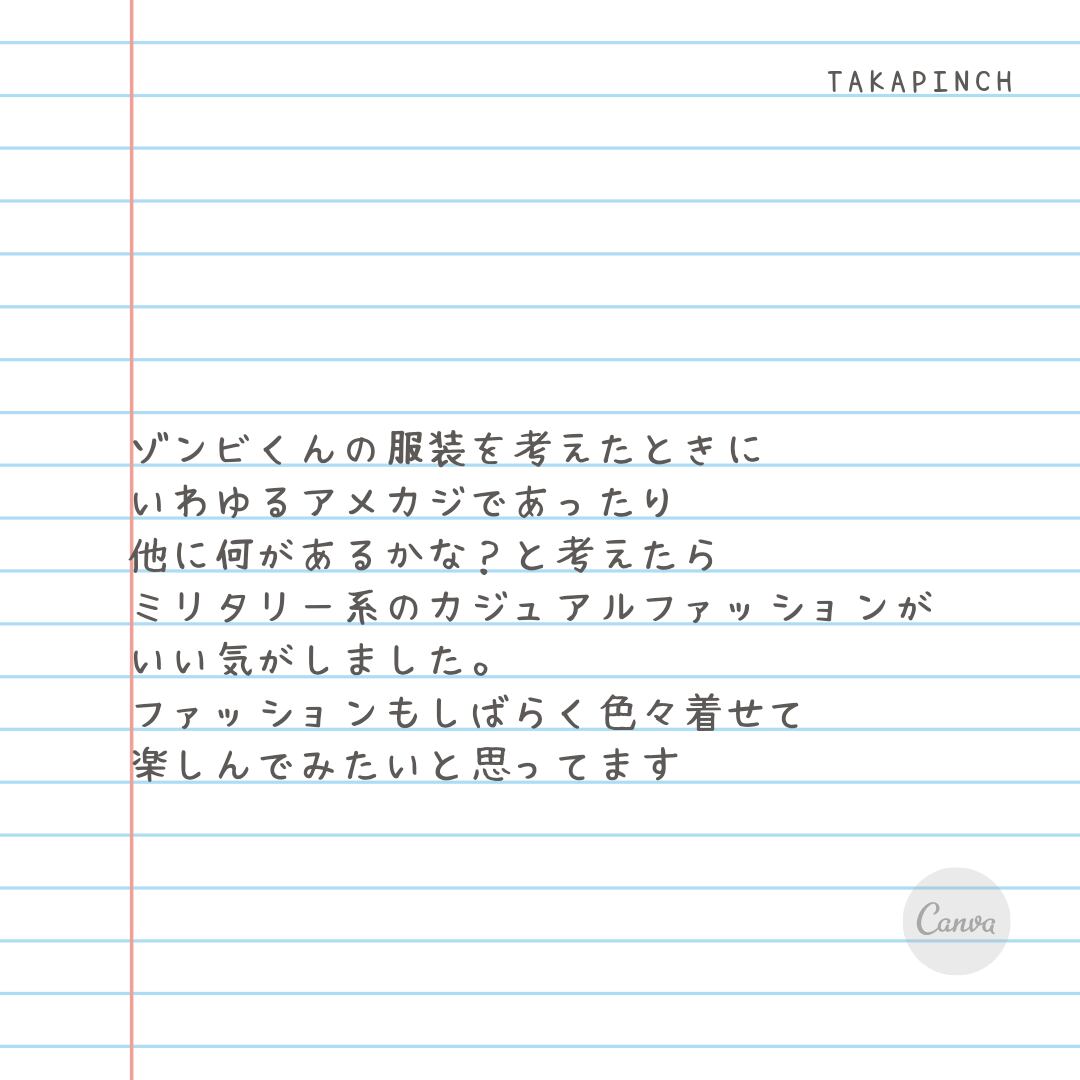 TAKAPINCH
ゾンビくんの服装を考えたときに
いわゆるアメカジであったり
他に何があるかな？と考えたら
ミリタリー系のカジュアルファッションが
いい気がしました。
ファッションもしばらく色々着せて
楽しんでみたいと思ってます
Canva